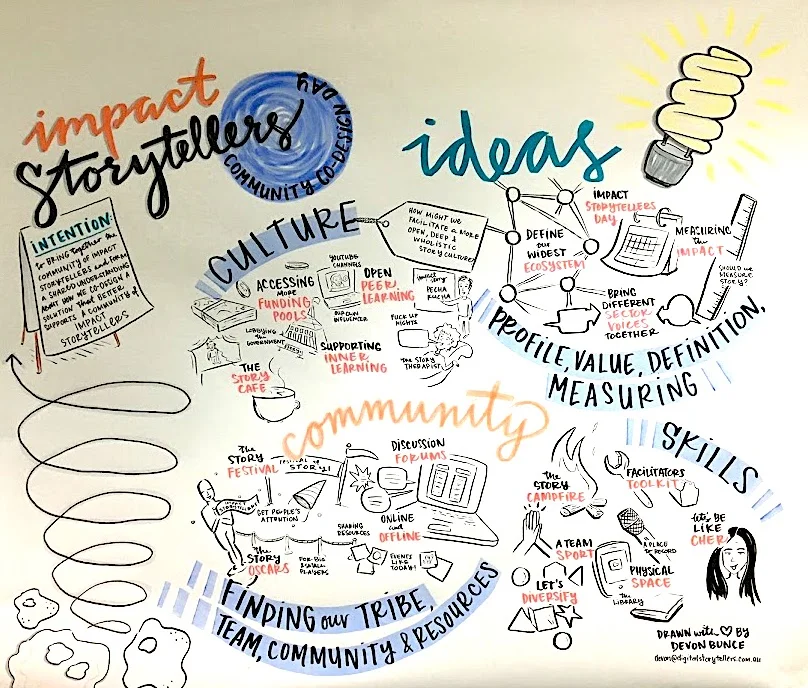 impact
Storytellers
COMMUNITY CO-DESIGN DAY
INTENTION:
to BRING together the
COMMUNITY OF IMPACT
STORYTELLERS and FORM
A SHARED UNDERSTANDING
ABOUT HOW WE CO-DESIGN A
SOLUTION that BETTER
SUPPORTS A COMMUNITY of
IMPACT
STORYTELLERS
ideas
CULTURE
HOW MIGHT WE
FACILITATE A MORE
OPEN, DEEP &
WHOLISTIC
STORY CULTURE
ACCESSING
MORE
FUNDING
POOLS
YOUTUBE
CHANNELS
OUR OWN
INFLUENCER
OPEN
PEER
LEARNING
PECHA
KUCHA
FUCK UP
NIGHTS
LOBBYING
the
GOVERNMENT
SUPPORTING
INNER
LEARNING
THE STORY
THERAPIST
THE
STORY
CAFE
DEFINE
our
WIDEST
ECOSYSTEM
IMPACT
STORYTELLERS
DAY
MEASURING
the
IMPACT
SHOULD WE
MEASURE
STORY?
BRING
DIFFERENT
SECTOR
VOICES
TOGETHER
PROFILE, VALUE, DEFINITION,
MEASURING
community
The
STORY
FESTIVAL
GET PEOPLE'S
ATTENTION
DISCUSSION
FORUMS
ONLINE
and
OFFLINE
SHARING
RESOURCES
The
STORY
OSCARS
FOR BIG
& SMALL
PLAYERS
EVENTS
LIKE
TODAY!
FINDING our TRIBE,
TEAM, COMMUNITY & RESOURCES
SKILLS
the
STORY
CAMPFIRE
FACILITATORS
TOOLKIT
A TEAM
SPORT
A PLACE
TO RECORD
let's BE
LIKE
CHER
LET'S
DIVERSIFY
PHYSICAL
SPACE
THE
LIBRARY
DRAWN with ♡ BY
DEVON BUNCE
devon@digitalstorytellers.com.au